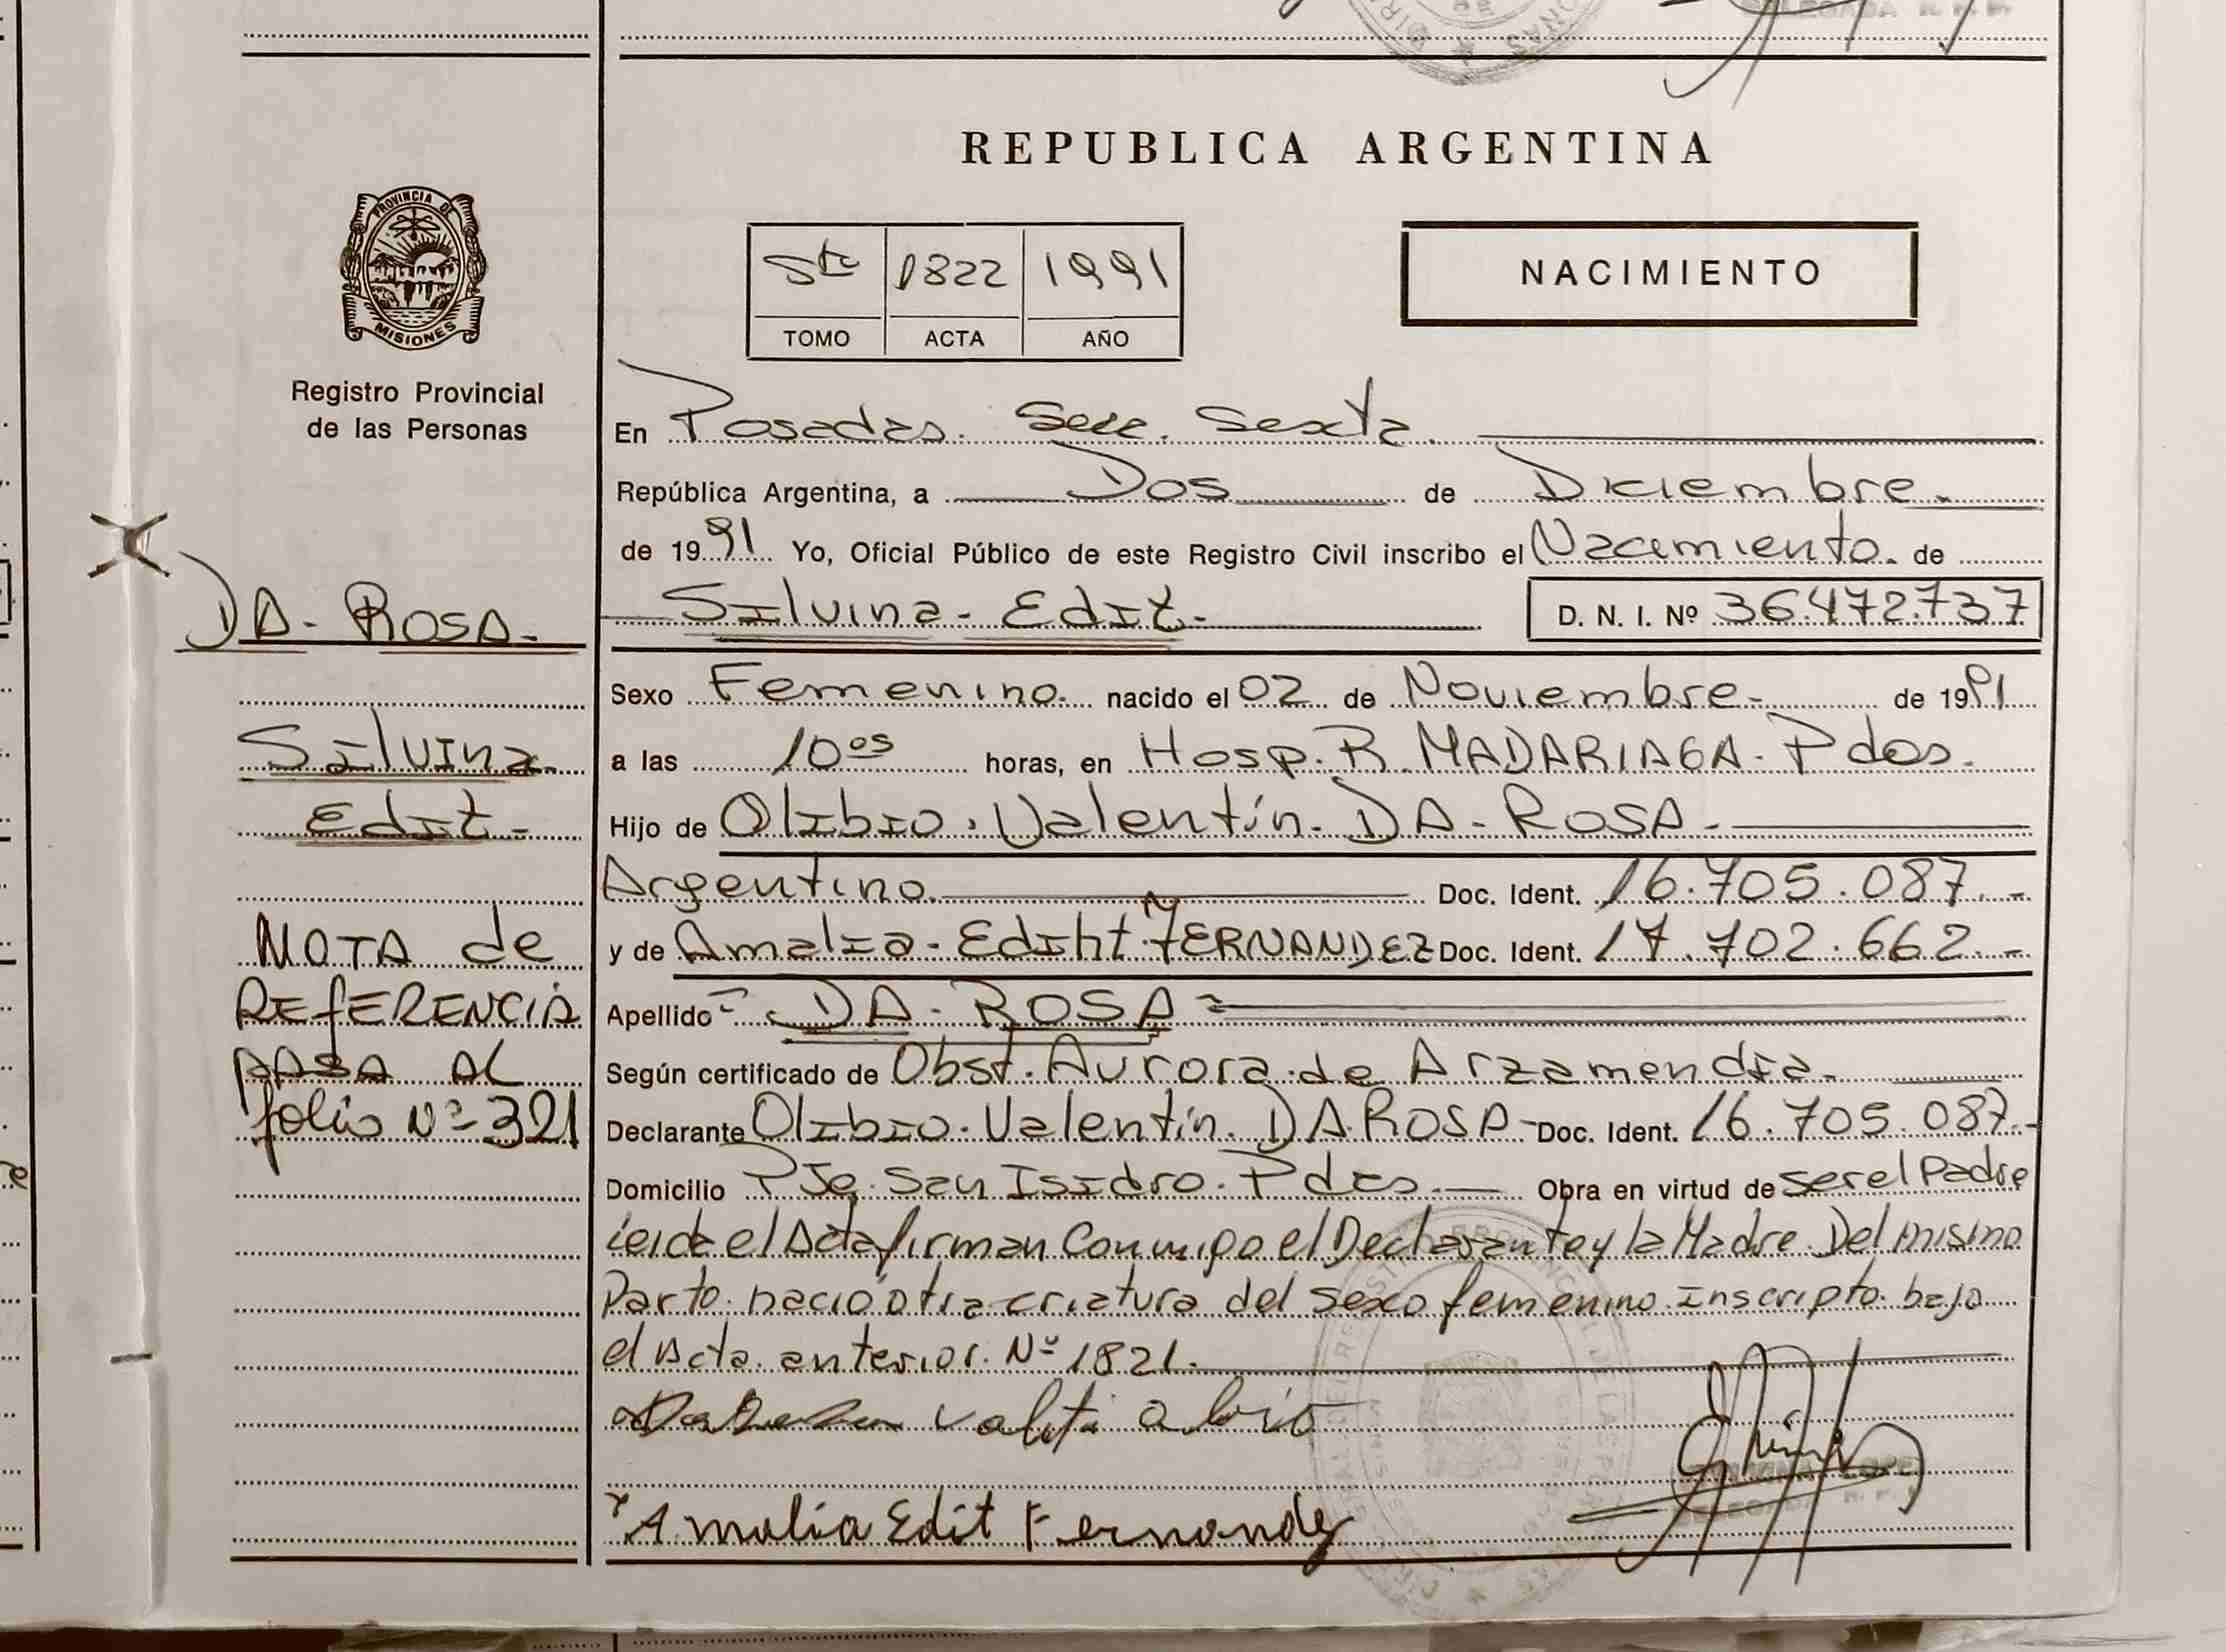 REPUBLICA ARGENTINA
PROVINCIA DE
MISIONES
Registro Provincial
de las Personas
Sto 1822 1991
TOMO ACTA AÑO
NACIMIENTO
En Posadas. Secc. Sexta.
República Argentina, a Dos de Diciembre.
de 1991 Yo, Oficial Público de este Registro Civil inscribo el Nacimiento. de
Silvina - Edit. - D. N. I. Nº 36.472.737
Sexo Femenino. nacido el 02 de Noviembre. de 1991
a las 10 os horas, en Hosp. R. MADARIAGA. Pdas.
Hijo de Olibio. Valentín. DA - ROSA. -
Argentino. Doc. Ident. 16.705.087. -
y de Amalia - Ediht. FERNANDEZ Doc. Ident. 17.702.662. -
Apellido DA - ROSA
Según certificado de Obst. Aurora de Arzamendia.
Declarante Olibio. Valentín. DA. ROSA - Doc. Ident. 16.705.087. -
Domicilio Pje. San Isidro. Pdas. Obra en virtud de ser el Padre
leida el Acta firman Conmigo el Declarante y la Madre. Del mismo
Parto. nació otra criatura del sexo femenino. Inscripto. bajo
el Acta. anterior. Nº 1821.
Amalia Edit Fernandez
DA - ROSA -
Silvina
Edit -
NOTA de
REFERENCIA
PASA AL
folio Nº 321